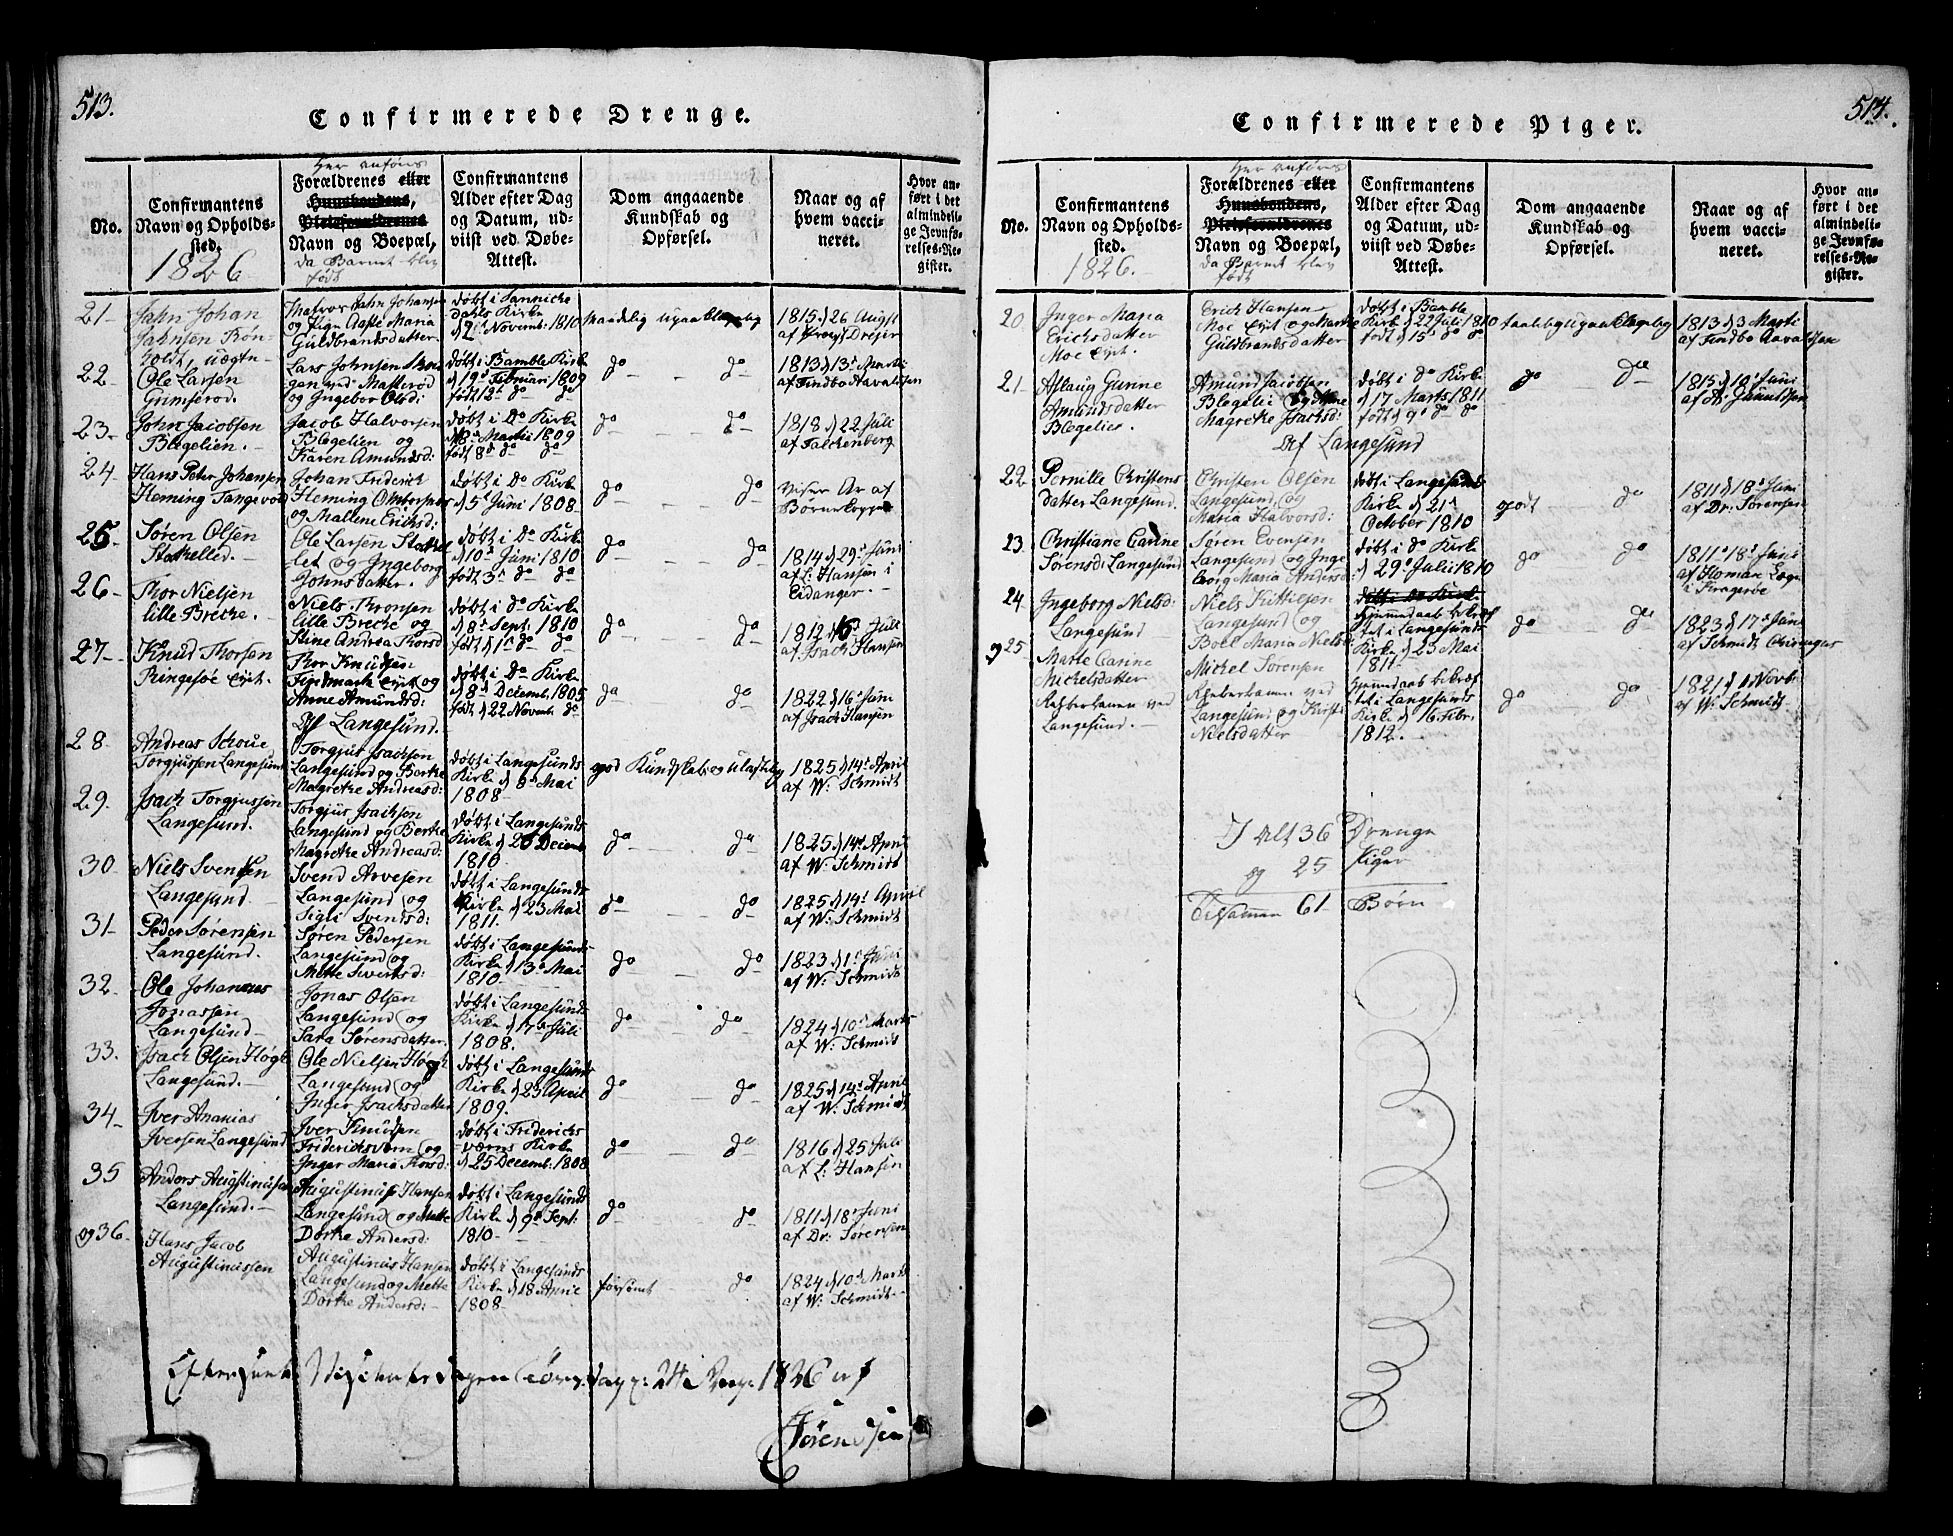 513.
Confirmerede Drenge.
No.
Confirmantens
Navn og Opholds-
sted.
1826
Her anføres
Forældrenes eller
Huusbondens,
Pleieforældrenes
Navn og Boepæl,
da Barnet blev
født
Confirmantens
Alder efter Dag
og Datum, ud-
viist ved Døbe-
Attest.
Dom angaaende
Kundskab og
Opførsel.
Naar og af
hvem vacci-
neret.
Hvor an-
ført i det
almindeli-
ge Jevnfø-
relses-Re-
gister.
21-
Jahn Johan
Jahnsen Røn-
holdt, uægte
Jahn Johansen
og Pige Aaste Maria
Guldbrandsdatter
døbt i Sannicke
dahls Kirke
d 2d Novemb: 1810
maadelig ugaabeklagelig
1815 d 26 Augst
af Provst Dreier
22-
Ole Larsen
Grimserod.
Lars Johnsen
og Ingebor Olsd:
døbt i Bamble Kirke
d 19d Februari 1809
født 12d do do
do - - do
1813 d 13d Martii
af Findbo Aavalsen
23-
John Jacobsen
Blegelien.-
Jacob Halvorsen
Blegelien og
Karen Amundsd:
døbt i Do Kirke
Martii 1809
født 8d do do
do - - do
1818 d 22 Juli
af Falckenberg
24-
Hans Peter Johansen
Heming Tangevold
Johan Friderich
Heming
og Mallene Ericksd:
døbt i Do Kirke
d 5d Juni 1808-
do - - do
viser Ar af
Børnekopper
25-
Søren Olsen
Stokelled.-
Ole Larsen Stokkel
let og Ingeborg
Johnsdatter.
døbt i Do Kirke
d 10d Juni 1810
født 3d do do
do - - do
1814 d 29d Juni
af L: Hansen i
Eidanger.-
26-
Thor Nielsen
lille Brecke.
Niels Thronsen
lille Brecke og
Stine Andrea Thorsd
døbt i do Kirke
d 8d Sept. 1810
født d 1d do do
do - - do
1812 d 16d Juli
af Isach Hansen
27-
Knud Thorsen
Ringesøe Ept.-
Thor Knudsen
Findmark Ept og
Anne Amundsd:
døbt i Do Kirke
d 8d Decemb. 1805
født d 22 Novemb do
do - - do
1822 d 16d Juni
af Isach Hansen
Af Langesund.
28-
Andreas Schoue
Torgjussen Langesund
Torgjus Isachsen
Langesund og Berthe
Magrethe Andreasd:
døbt i Langesunds
Kirke d 8d Mai
1808-
god Kundskab og ulastelig
1825 d 14d April
af W: Schmidt
29.
Isach Torgjussen
Langesund.
Torgjus Isachsen
Langesund og Berthe
Magrethe Andreasd:
døbt i Langesunds
Kirke d 26 Decemb
1810-
do - - do
1825 d 14d April
af W: Schmidt
30-
Niels Svendsen
Langesund.-
Svend Arvesen
Langesund og
Sigli Svendsd:
døbt i Langesunds
Kirke d 23 Mai
1811.-
do - - do
1825 d 14d April
af W: Schmidt
31-
Peder Sørensen
Langesund.
Søren Pedersen
Langesund og
Mette Sivertsd:
døbt i Langesunds
Kirke d 13d Mai
1810-
do - - do
1823 d 1d Juni
af W: Schmidt
32-
Ole Johannes
Jonassen
Langesund-
Jonas Olsen
Langesund og
Sara Sørensdatter.
døbt i Langesunds
Kirke d 17d Juli
1808.
do - - do
1824 d 10d Marts
af W: Schmidt
33.
Isach Olsen Høgh
Langesund.-
Ole Nielsen Høegh
Langesund og
Inger Isachsdatter
døbt i Langesunds
Kirke d 23 April
1809.
do - - do
1825 d 14d April
af W: Schmidt
34-
Iver Ananias
Iversen Langesund
Iver Knudsen
Fridericksværn og
Inger Maria Thorsd:
døbt i Friderichs
værns Kirke
d 25 Decemb: 1808
do - - do
1816 d 25 Juli
af L: Hansen
35
Anders Augustinusen
Langesund.-
Augustinus Hansen
Langesund og Mette
Dorthe Andersd:
døbt i Langesunds
Kirke d 9d Sept:
1810-
do - - do
1811 d 18d Juni
af Dr: Sørensen
og 36-
Hans Jacob
Augustinussen
Augustinus Hansen
Langesund og Mette
Dorthe Andersd:
døbt i Langesunds
Kirke d 18 April
1808-
forsømt - do
1824 d 10d Marts
af W: Schmidt-
1826
Sørensen
514.
Confirmerede Piger.
No.
Confirmantens
Navn og Opholds-
sted.
1826.
Her anføres
Forældrenes eller
Huusbondens,
Pleieforældrenes
Navn og Boepæl,
da Barnet blev
født
Confirmantens
Alder efter Dag
og Datum, ud-
viist ved Døbe-
Attest.
Dom angaaende
Kundskab og
Opførsel.
Naar og af
hvem vacci-
neret.
Hvor an-
ført i det
almindeli-
ge Jevnfø-
relses-Re-
gister.
20-
Inger Maria
Ericksdatter
Moe Ept.
Erich Hansen
Moe Ept og Marthe
Guldbrandsdatter
døbt i Bamble
Kirke d 22 Juli 1810
født d 15d do do
taalelig ugaabeklagelig
1813 d 3 Marti
af Findbo Aavalsen
21-
Aslaug Gunne
Amundsdatter
Blegelien.
Amund Jacobsen
Blegelie og Anne
Magrethe Isachsd:
døbt i Do Kirke
d 17 Marts 1811
født d 9d do do
do - - do
1815 d 10d Juni
af A. Knudsen
Af Langesund
22-
Pernille Christens
datter Langesund.
Christen Olsen
Langesund og
Maria Halvorsd:
døbt i Langesunds
Kirke d 21d
October 1810
godt - - do
1811 d 18d Juni
af Dr: Sørensen
23-
Christiane Carine
Sørensd: Langesund
Søren Evensen
Langesund og Inge
borg Maria Andersd:
døbt i do Kirke
d 29d Julii 1810
do - - do
1811 d 18d Juni
af Homan Læge
i Kragerøe
24-
Ingeborg Nielsd:
Langesund
Niels Kittilsen
Langesund og
Boel Maria Nielsd:
døbt i do Kirke
hjemmedaab bekræf
tet i Langesunds
Kirke d 23 Mai
1811-
do - - do
1823 d 17d Juni
af Schmidt Chirurgus
og 25-
Marte Carine
Michelsdatter
ved
Langesund.-
Michel Sørensen
ved
Langesund og Kirsti
Nielsdatter
hjemmedaab bekræf
tet i Langesunds
Kirke d 16 Febr.
1812.-
do - - do
1821 d 1 Novb
af W: Schmidt.
I alt 36 Drenge
og 25 Piger
Tilsammen 61 Børn